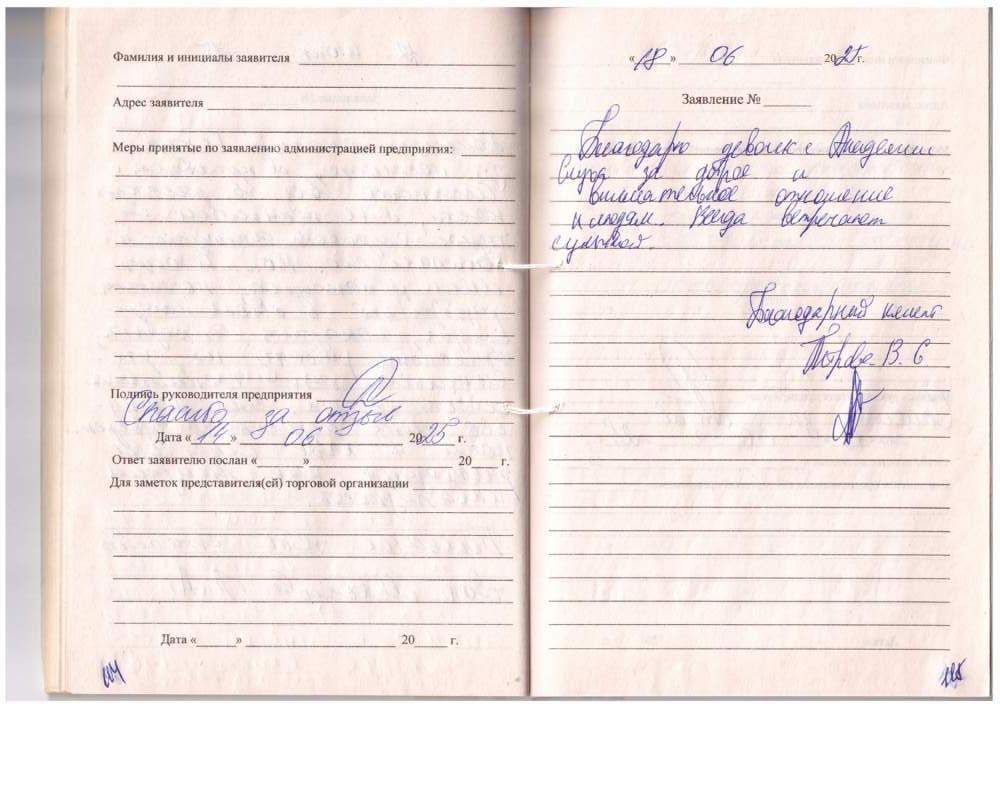 Фамилия и инициалы заявителя
Адрес заявителя
Меры принятые по заявлению администрацией предприятия:
Подпись руководителя предприятия
Спасибо за отзыв
Дата «14» 06 2025 г.
Ответ заявителю послан «        »                    20     г.
Для заметок представителя(ей) торговой организации
Дата «        »                    20     г.
104
«18» 06 2025г.
Заявление №
Благодарю девочек Академии
Слуха за доброе и
внимательное отношение
к людям. Всегда встречают
с улыбкой.
Благодарный клиент
В. С.